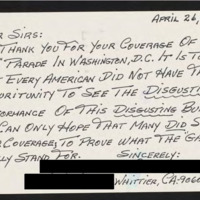 APRIL 26,
R SIRS:
THANK YOU FOR YOUR COVERAGE OF
PARADE IN WASHINGTON, D.C. IT IS TO
EVERY AMERICAN DID NOT HAVE T
ORTUNITY TO SEE THE DISGUSTIN
FORMANCE OF THIS DISGUSTING BU
CAN ONLY HOPE THAT MANY DID S
COVERAGE TO PROVE WHAT THE "GA
LLY STAND FOR. SINCERELY:
WHITTIER, CA. 9060